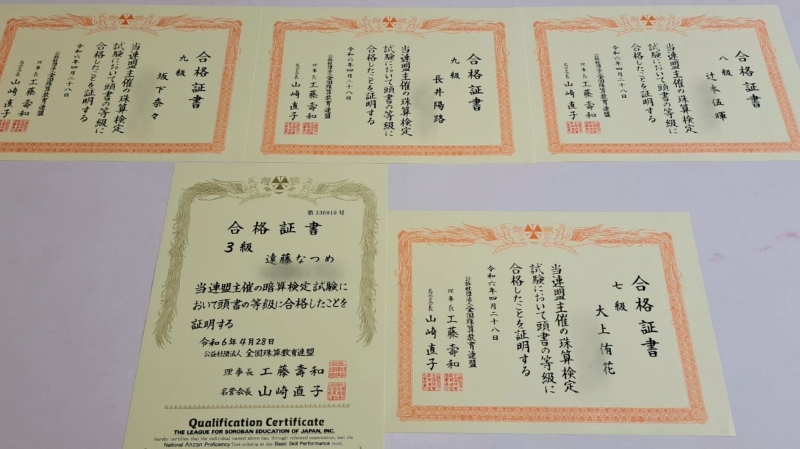 合格証書
九級
坂下奈々
当連盟主催の珠算検定
試験において頭書の等級に
合格したことを証明する
令和六年四月二十八日
公益社団法人全国珠算教育連盟
理事長 工藤壽和
名誉会長 山崎直子
合格証書
九級
長井陽路
当連盟主催の珠算検定
試験において頭書の等級に
合格したことを証明する
令和六年四月二十八日
公益社団法人全国珠算教育連盟
理事長 工藤壽和
名誉会長 山崎直子
合格証書
八級
辻本伍暉
当連盟主催の珠算検定
試験において頭書の等級に
合格したことを証明する
令和六年四月二十八日
公益社団法人全国珠算教育連盟
理事長 工藤壽和
名誉会長 山崎直子
第330916号
合格証書
3級
遠藤なつめ
当連盟主催の暗算検定試験に
おいて頭書の等級に合格したことを
証明する
令和6年4月28日
公益社団法人 全国珠算教育連盟
理事長 工藤壽和
名誉会長 山崎直子
Qualification Certificate
THE LEAGUE FOR SOROBAN EDUCATION OF JAPAN, INC.
hereby certifies that the individual named above has, through referenced examination, met the
National Anzan Proficiency Test criteria at the Basic Skill Performance level.
合格証書
七級
大上侑花
当連盟主催の珠算検定
試験において頭書の等級に
合格したことを証明する
令和六年四月二十八日
公益社団法人全国珠算教育連盟
理事長 工藤壽和
名誉会長 山崎直子